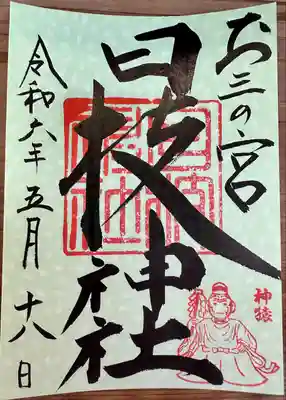 お三の宮
日枝神社
令和六年五月十八日
神猿